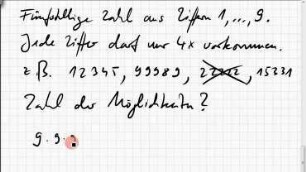 Fünfstellige Zahl aus Ziffern 1, ..., 9.
Jede Ziffer darf nur 4x vorkommen.
z.B. 12345, 99989, 22222, 15231
Zahl der Möglichkeiten?
9.9.